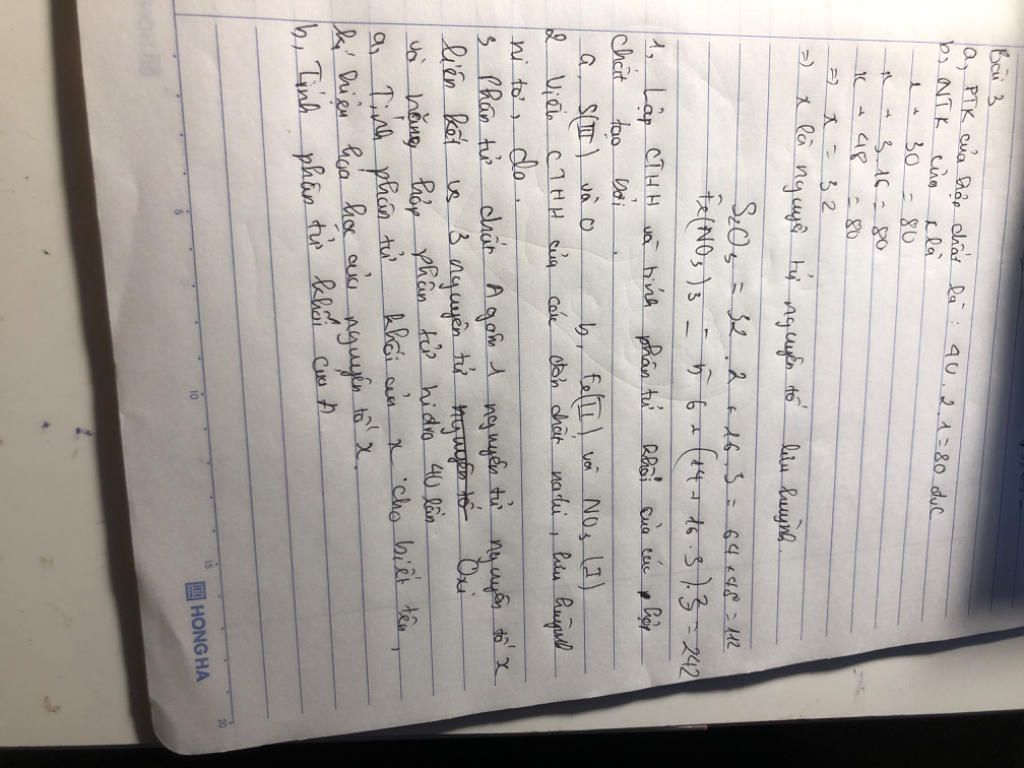 Bài 3
a, PTK của hợp chất là : 40 . 2 . 1 = 80 đvC
b, NTK của x là
x + 30 = 80
x + 3.16 = 80
x + 48 = 80
=> x = 32
=> x là nguyê tử nguyên tố lưu huỳnh.
S2O3 = 32 . 2 + 16 . 3 = 64 + 48 = 112
Fe(NO3)3 = 56 + (14 + 16 . 3) . 3 = 242
1, Lập CTHH và tính phân tử khối của các hợp
chất tạo bởi.
a, S(III) và O b, Fe(II) và NO3 (I)
2 Viết CTHH của các đơn chất natri, lưu huỳnh
ni tơ, clo.
3 Phân tử chất A gồm 1 nguyên tử nguyên tố x
liên kết vs 3 nguyên tử nguyên tố Oxi
và nặng gấp phân tử hidro 40 lần
a, Tính phân tử khối của x cho biết tên,
kí hiệu hóa học của nguyên tố x.
b, Tính phân tử khối của A
HONG HA
5 10 15 20